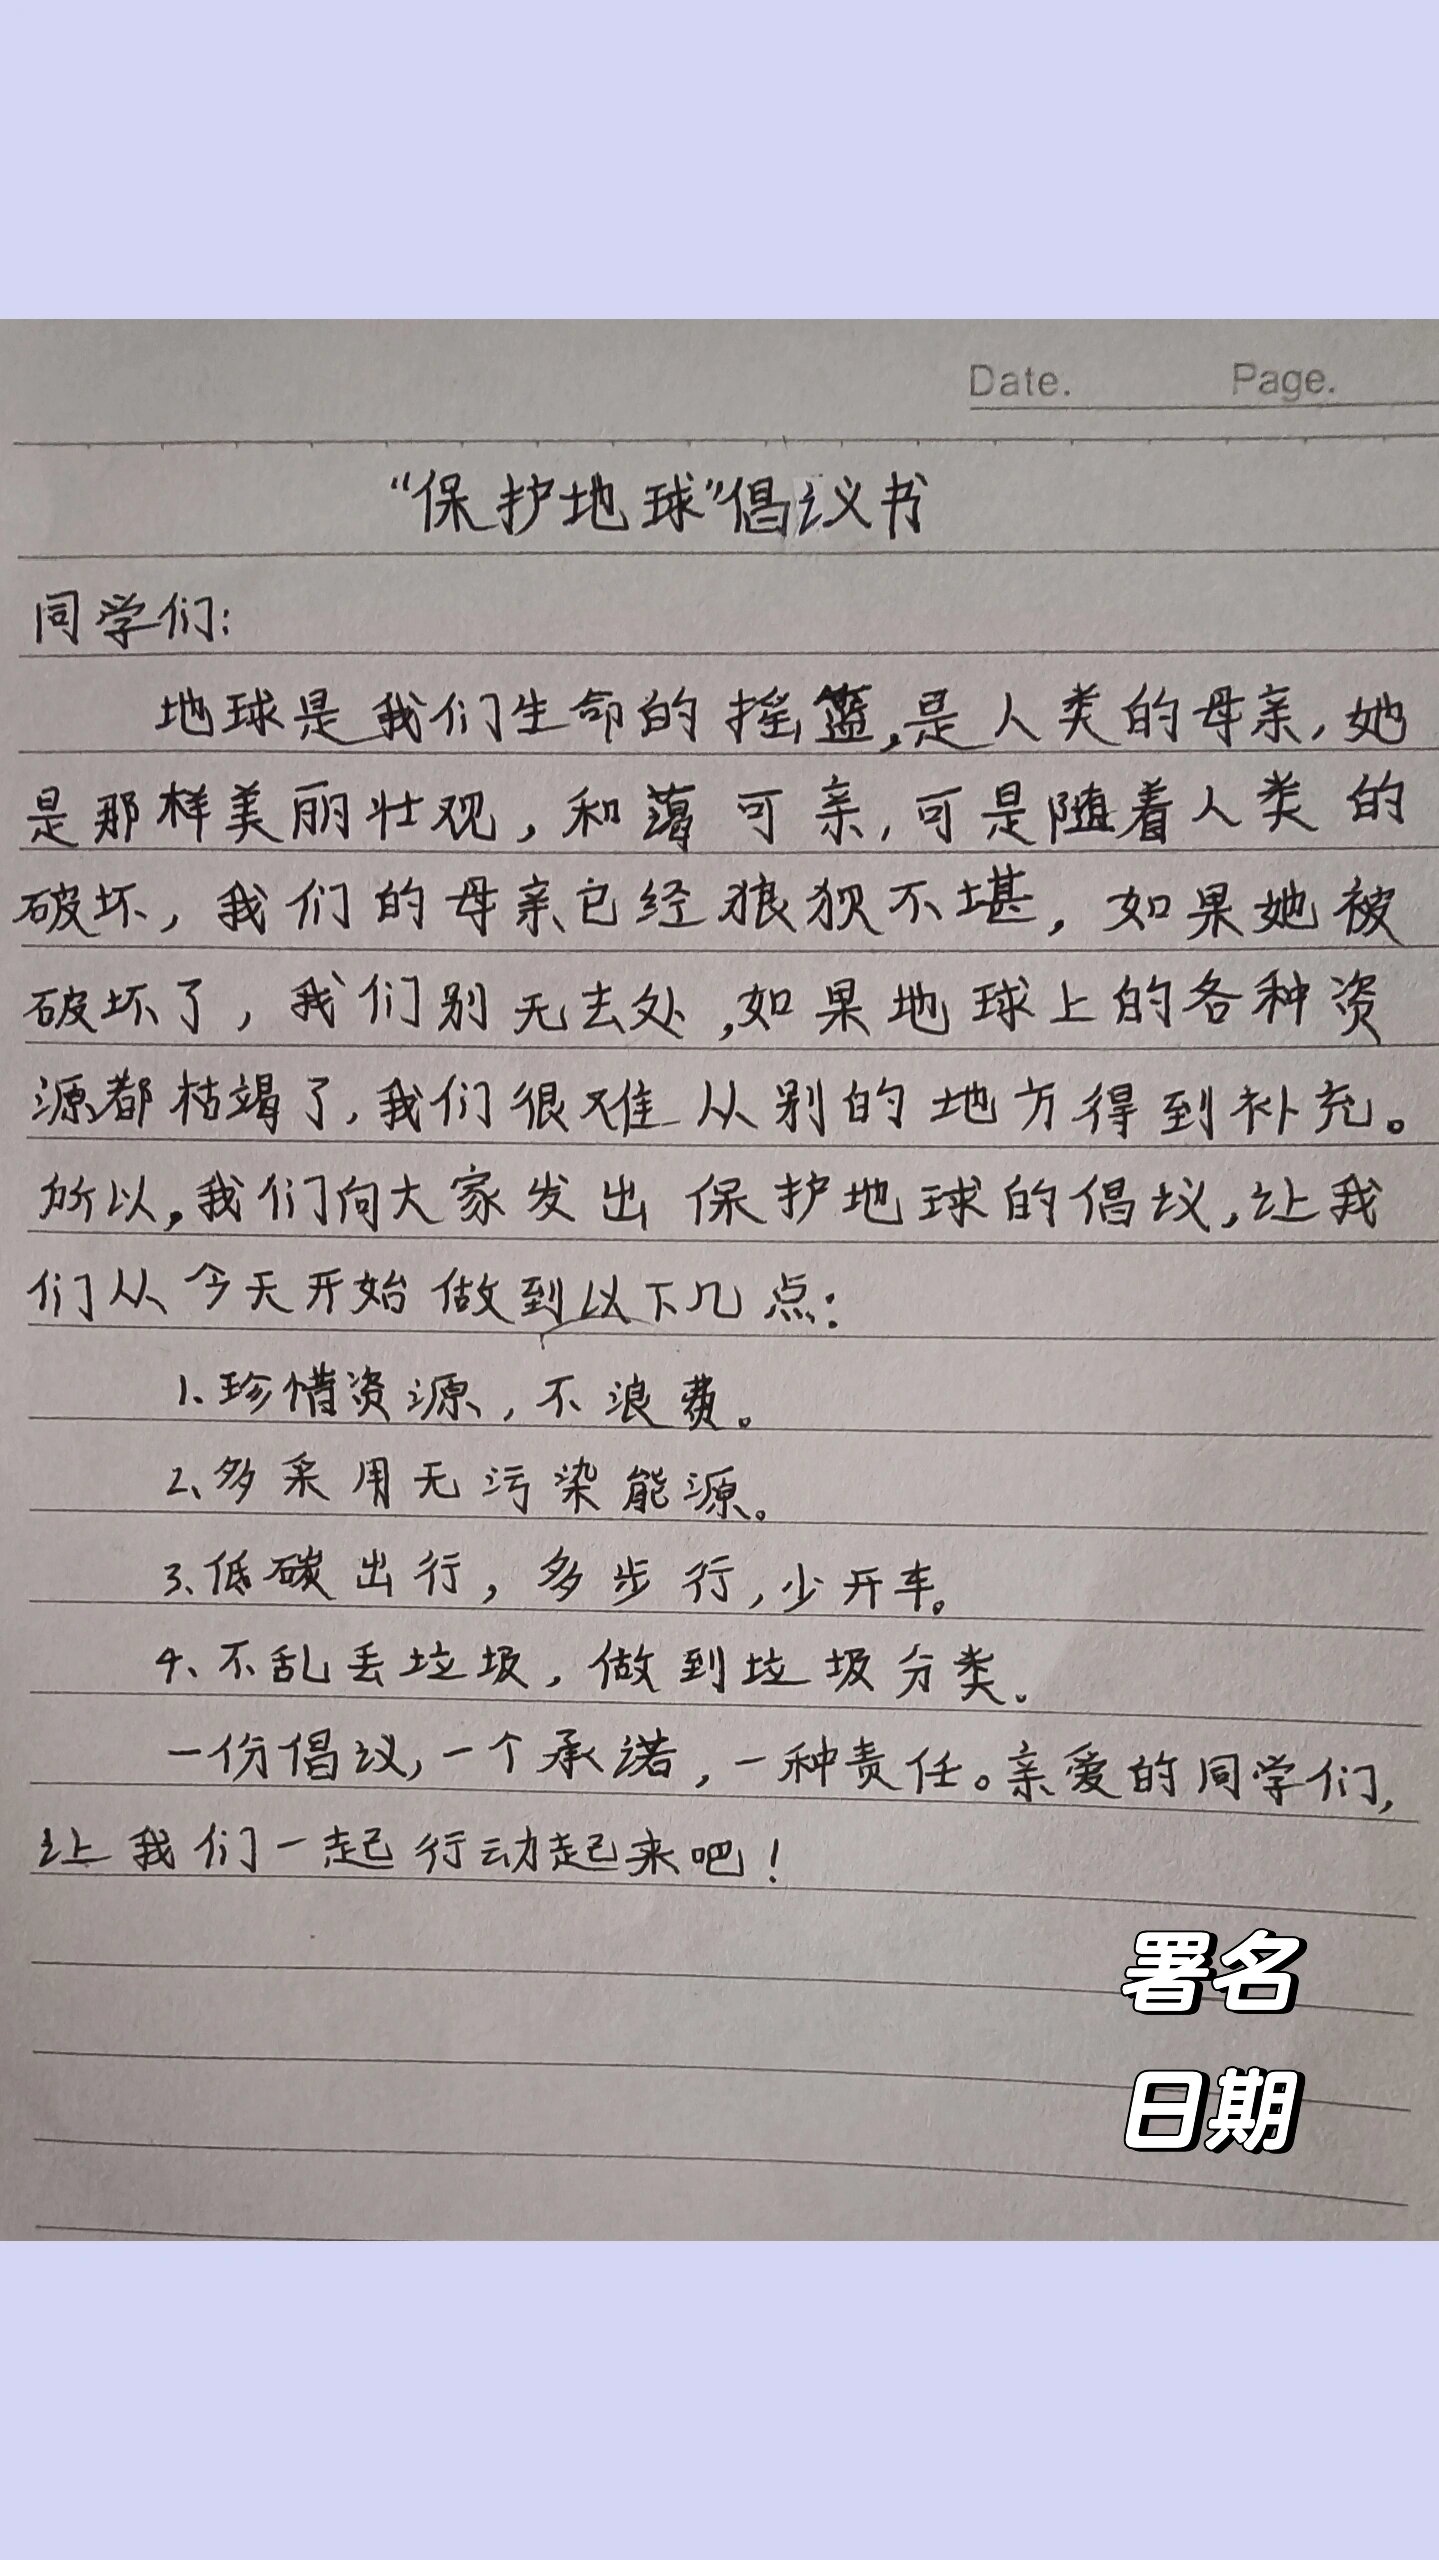 Date. Page.
“保护地球”倡议书
同学们:
地球是我们生命的摇篮,是人类的母亲,她
是那样美丽壮观,和蔼可亲,可是随着人类的
破坏,我们的母亲已经狼狈不堪,如果她被
破坏了,我们别无去处,如果地球上的各种资
源都枯竭了,我们很难从别的地方得到补充。
所以,我们向大家发出保护地球的倡议,让我
们从今天开始做到以下几点:
1、珍惜资源,不浪费。
2、多采用无污染能源。
3、低碳出行,多步行,少开车。
4、不乱丢垃圾,做到垃圾分类。
一份倡议,一个承诺,一种责任。亲爱的同学们,
让我们一起行动起来吧!
署名
日期